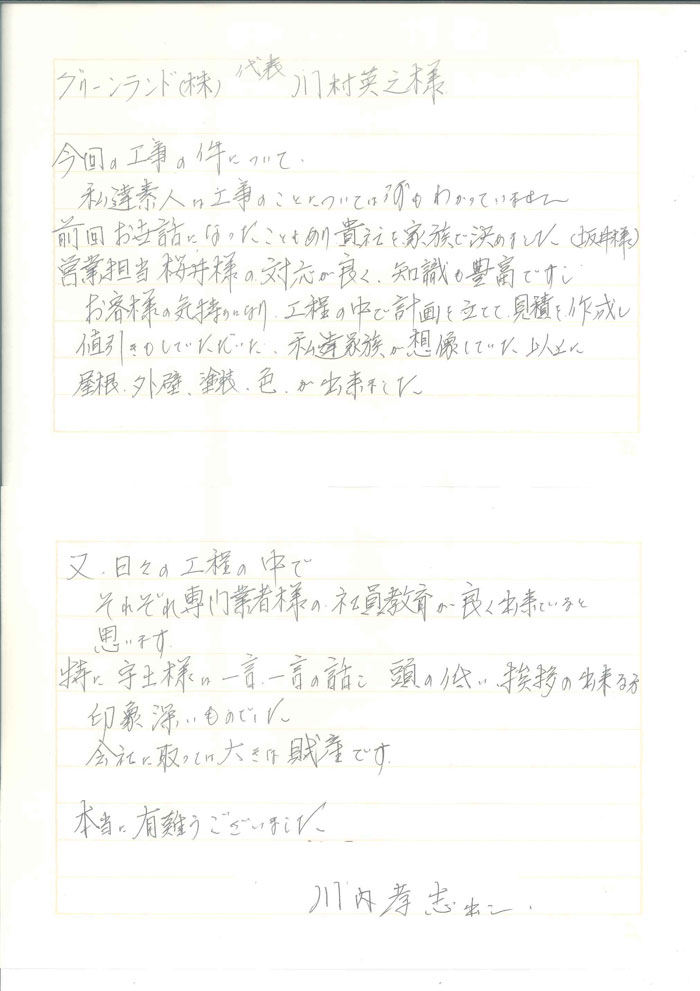 グリーンランド(株) 代表 川村英之様
今回の工事の件について.
私達素人は工事のことについては何もわかっていません
前回お世話になったこともあり貴社を家族で決めました(坂井様)
営業担当 桜井様の対応が良く、知識も豊富ですし
お客様の気持になり、工程の中で計画を立てて、見積を作成し
値引きもしていただいた、私達家族が想像していた以上に
屋根、外壁、塗装、色、が出来ました
又、日々の工程の中で
それぞれ専門業者様の社員教育が良く出来ていると
思います.
特に宇土様は一言、一言の話し 頭の低い、挨拶の出来る方
印象深いものでした
会社に取っては大きな財産です.
本当に有難うございました
川内孝志